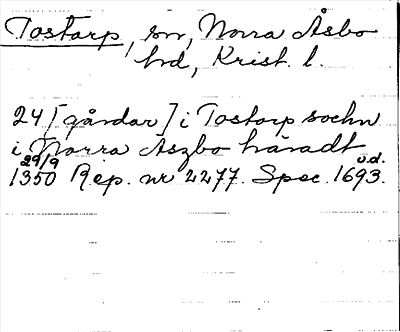 Tostarp, sn, Norra Åsbo
hd, Krist. l.
24 [gårdar] i Tostorp sochn
i Norra Åszbo häradt
29/9 ü.d.
1350 Rep. nr 2277. Spec. 1693.